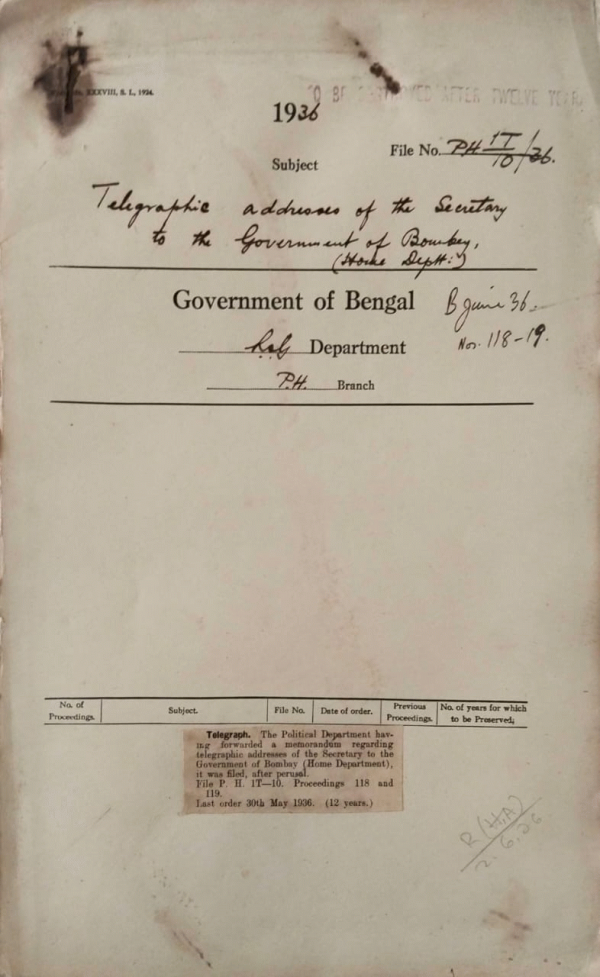 XXXVIII, S. I., 1934.
TO BE DESTROYED AFTER TWELVE YEARS
1936
File No. PH 1T/10/36.
Subject
Telegraphic addresses of the Secretary
to the Government of Bombay,
(Home Deptt:)
Government of Bengal
B June 36.
LSG Department
Nos. 118-19.
P.H. Branch
No. of Proceedings. Subject. File No. Date of order. Previous Proceedings. No. of years for which to be Preserved.
Telegraph. The Political Department hav-
ing forwarded a memorandum regarding
telegraphic addresses of the Secretary to the
Government of Bombay (Home Department),
it was filed, after perusal.
File P. H. 1T—10. Proceedings 118 and
119.
Last order 30th May 1936. (12 years.)
2.6.36